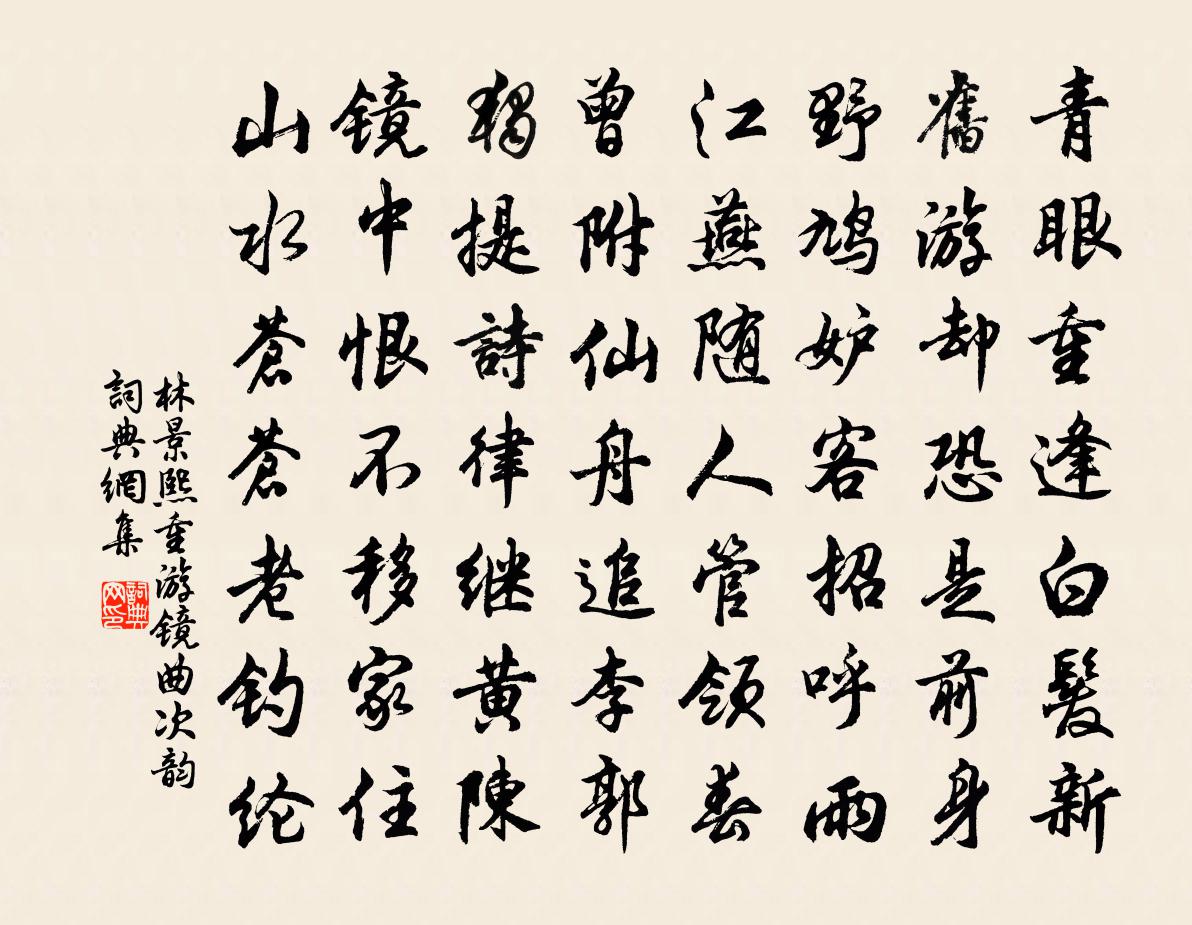 青眼重逢白髮新
舊游却恐是前身
野鳩妒客招呼雨
江燕随人管領春
曾附仙舟追李郭
獨提詩律继黄陳
镜中恨不移家住
山水蒼蒼老钓纶
林景熙重游镜曲次韵
詞典網集
詞典网印